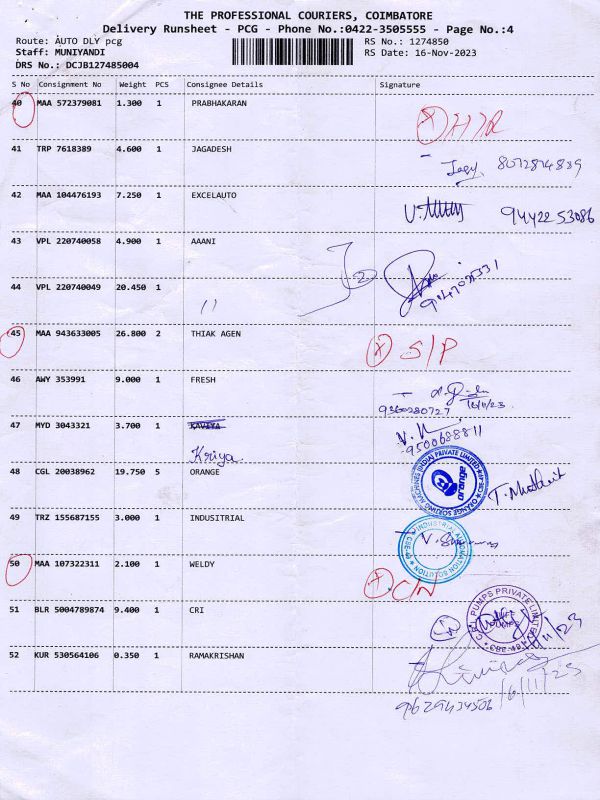 THE PROFESSIONAL COURIERS, COIMBATORE
Delivery Runsheet - PCG - Phone No.:0422-3505555 - Page No.:4
Route: AUTO DLY pcg RS No.: 1274850
Staff: MUNIYANDI RS Date: 16-Nov-2023
DRS No.: DCJB127485004
S No Consignment No Weight PCS Consignee Details Signature
40 MAA 572379081 1.300 1 PRABHAKARAN
41 TRP 7618389 4.600 1 JAGADESH
Jagy 8072874889
42 MAA 104476193 7.250 1 EXCELAUTO
9442253086
43 VPL 220740058 4.900 1 AAANI
44 VPL 220740049 20.450 1
11
45 MAA 943633005 26.800 2 THIAK AGEN
S/P
46 AWY 353991 9.000 1 FRESH
16/11/23
9360280727
47 MYD 3043321 3.700 1 KAVIYA
9500688811
Kriya
48 CGL 20038962 19.750 5 ORANGE
ORANGE SORTING MACHINES (INDIA) PRIVATE LIMITED
orange
49 TRZ 155687155 3.000 1 INDUSITRIAL
INDUSTRIAL AUTOMATION SOLUTION
50 MAA 107322311 2.100 1 WELDY
C/N
51 BLR 5004789874 9.400 1 CRI
C.R.I. PUMPS PRIVATE LIMITED
PUMPS
52 KUR 530564106 0.350 1 RAMAKRISHAN
9629434506 16/11/23